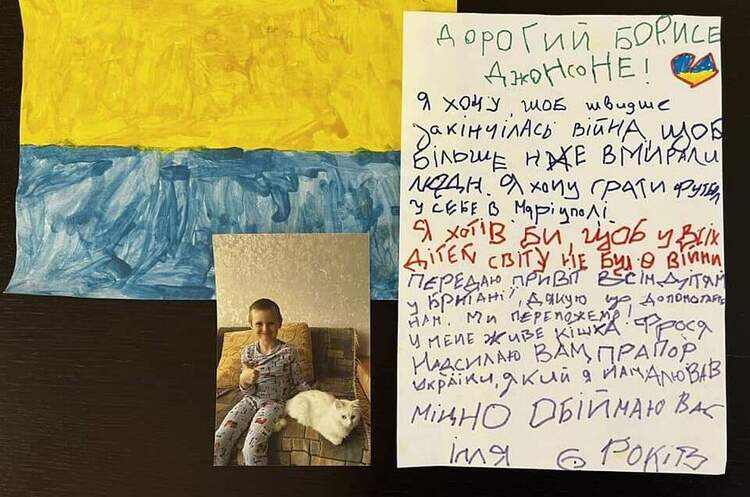 ДОРОГИЙ БОРИСЕ
ДЖОНСОНЕ!
Я ХОЧУ, ЩОБ ШВИДШЕ
ЗАКІНЧІЛАСЬ ВІЙНА, ЩОБ
БІЛЬШЕ НЕ ВМИРАЛИ
ЛЮДИ. Я ХОЧУ ГРАТИ ФУТБОЛ
У СЕБЕ В МаРІУПОЛІ.
Я ХОТІВ БИ, ЩОБ У ВСІХ
ДІТЕЙ СВІТУ НЕ БУЛО ВІЙНИ
ПЕРЕДАЮ ПРИВІТ ВСІМ ДІТЯМ
У БРИТАНІЇ, ДЯКУЮ ЩО ДОПОМОГАЄТЕ
НАМ. МИ ПЕРЕМОЖЕМ!
У МЕНЕ ЖИВЕ КІШКА ФРОСЯ
НАДСИЛАЮ ВАМ ПРАПОР
УКРАЇНИ, ЯКИЙ Я НАМАЛЮВАВ
МІЦНО ОБІЙМАЮ ВАС
ІЛЛЯ 6 РОКІВ